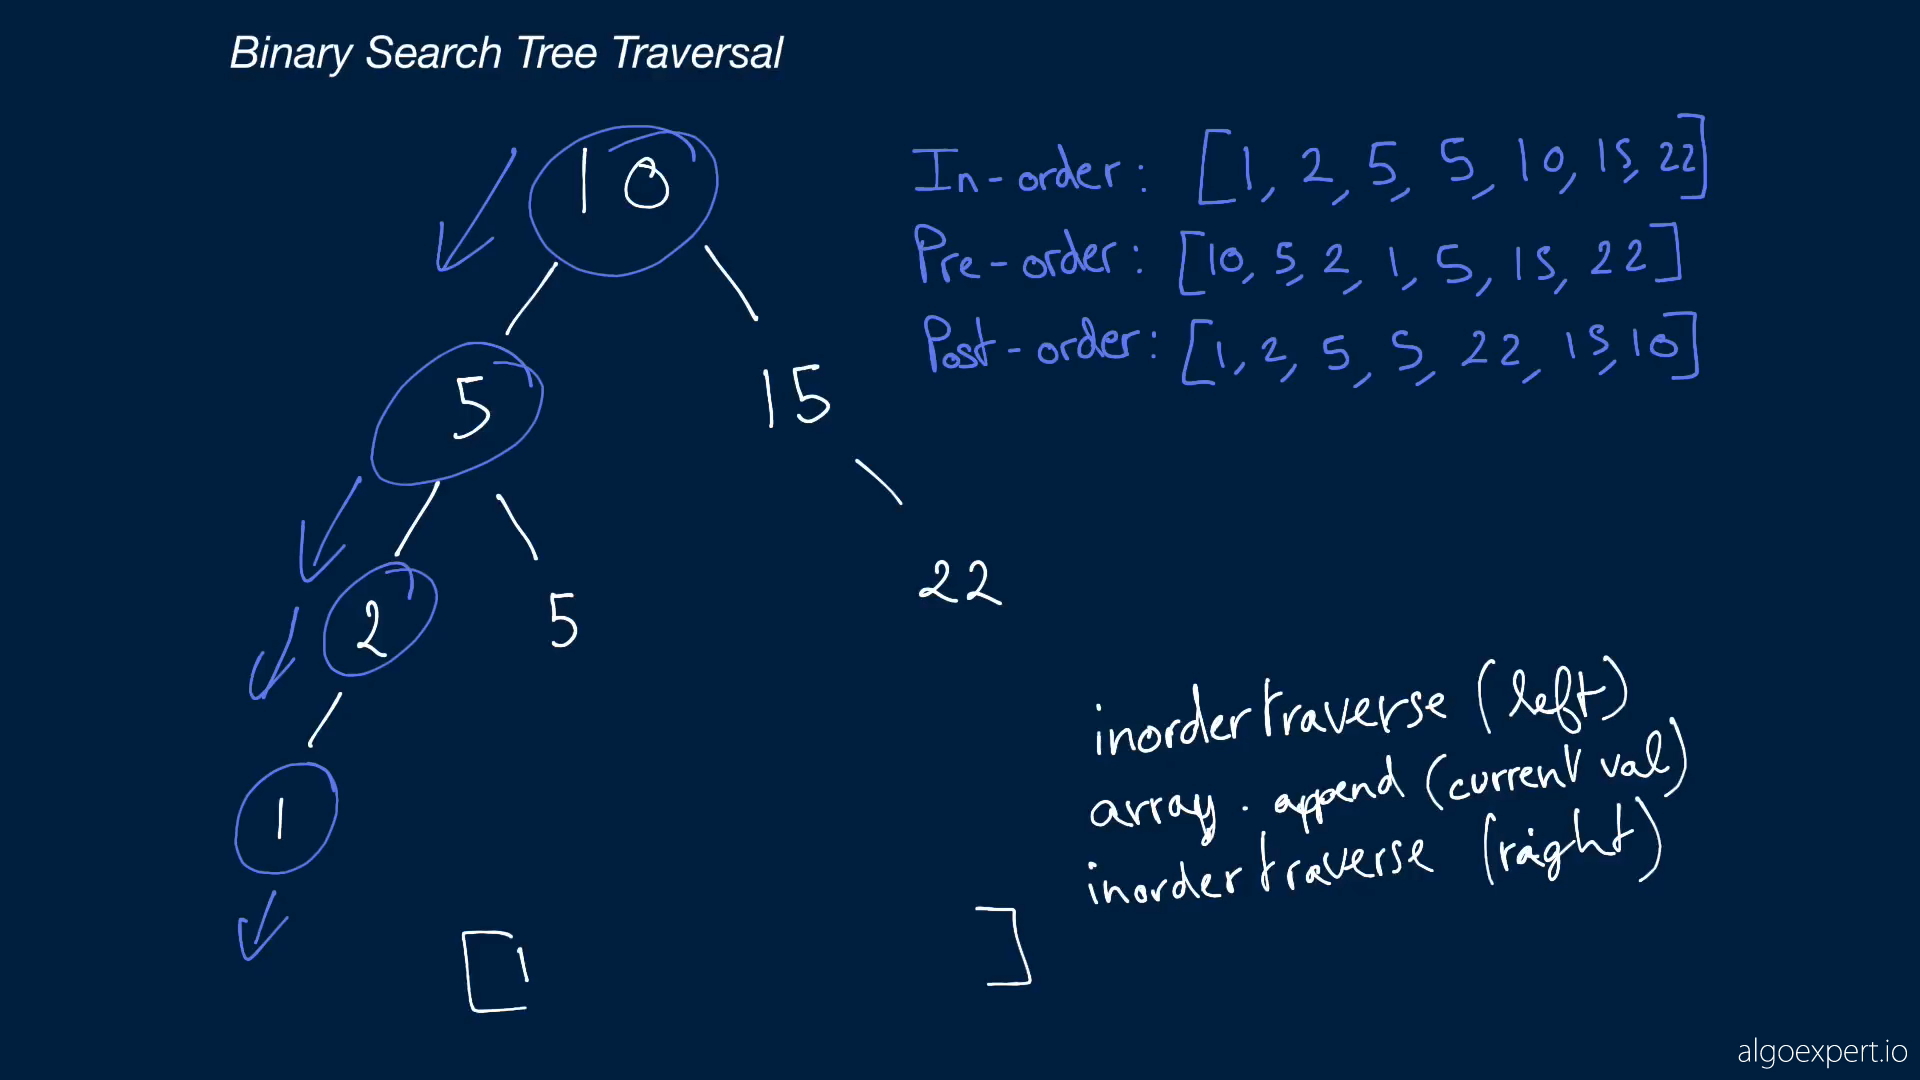 Binary Search Tree Traversal
10
5
15
2
5
22
1
In-order: [1, 2, 5, 5, 10, 15, 22]
Pre-order: [10, 5, 2, 1, 5, 15, 22]
Post-order: [1, 2, 5, 5, 22, 15, 10]
inordertraverse (left)
array . append (current val)
inordertraverse (right)
[1 ]
algoexpert.io